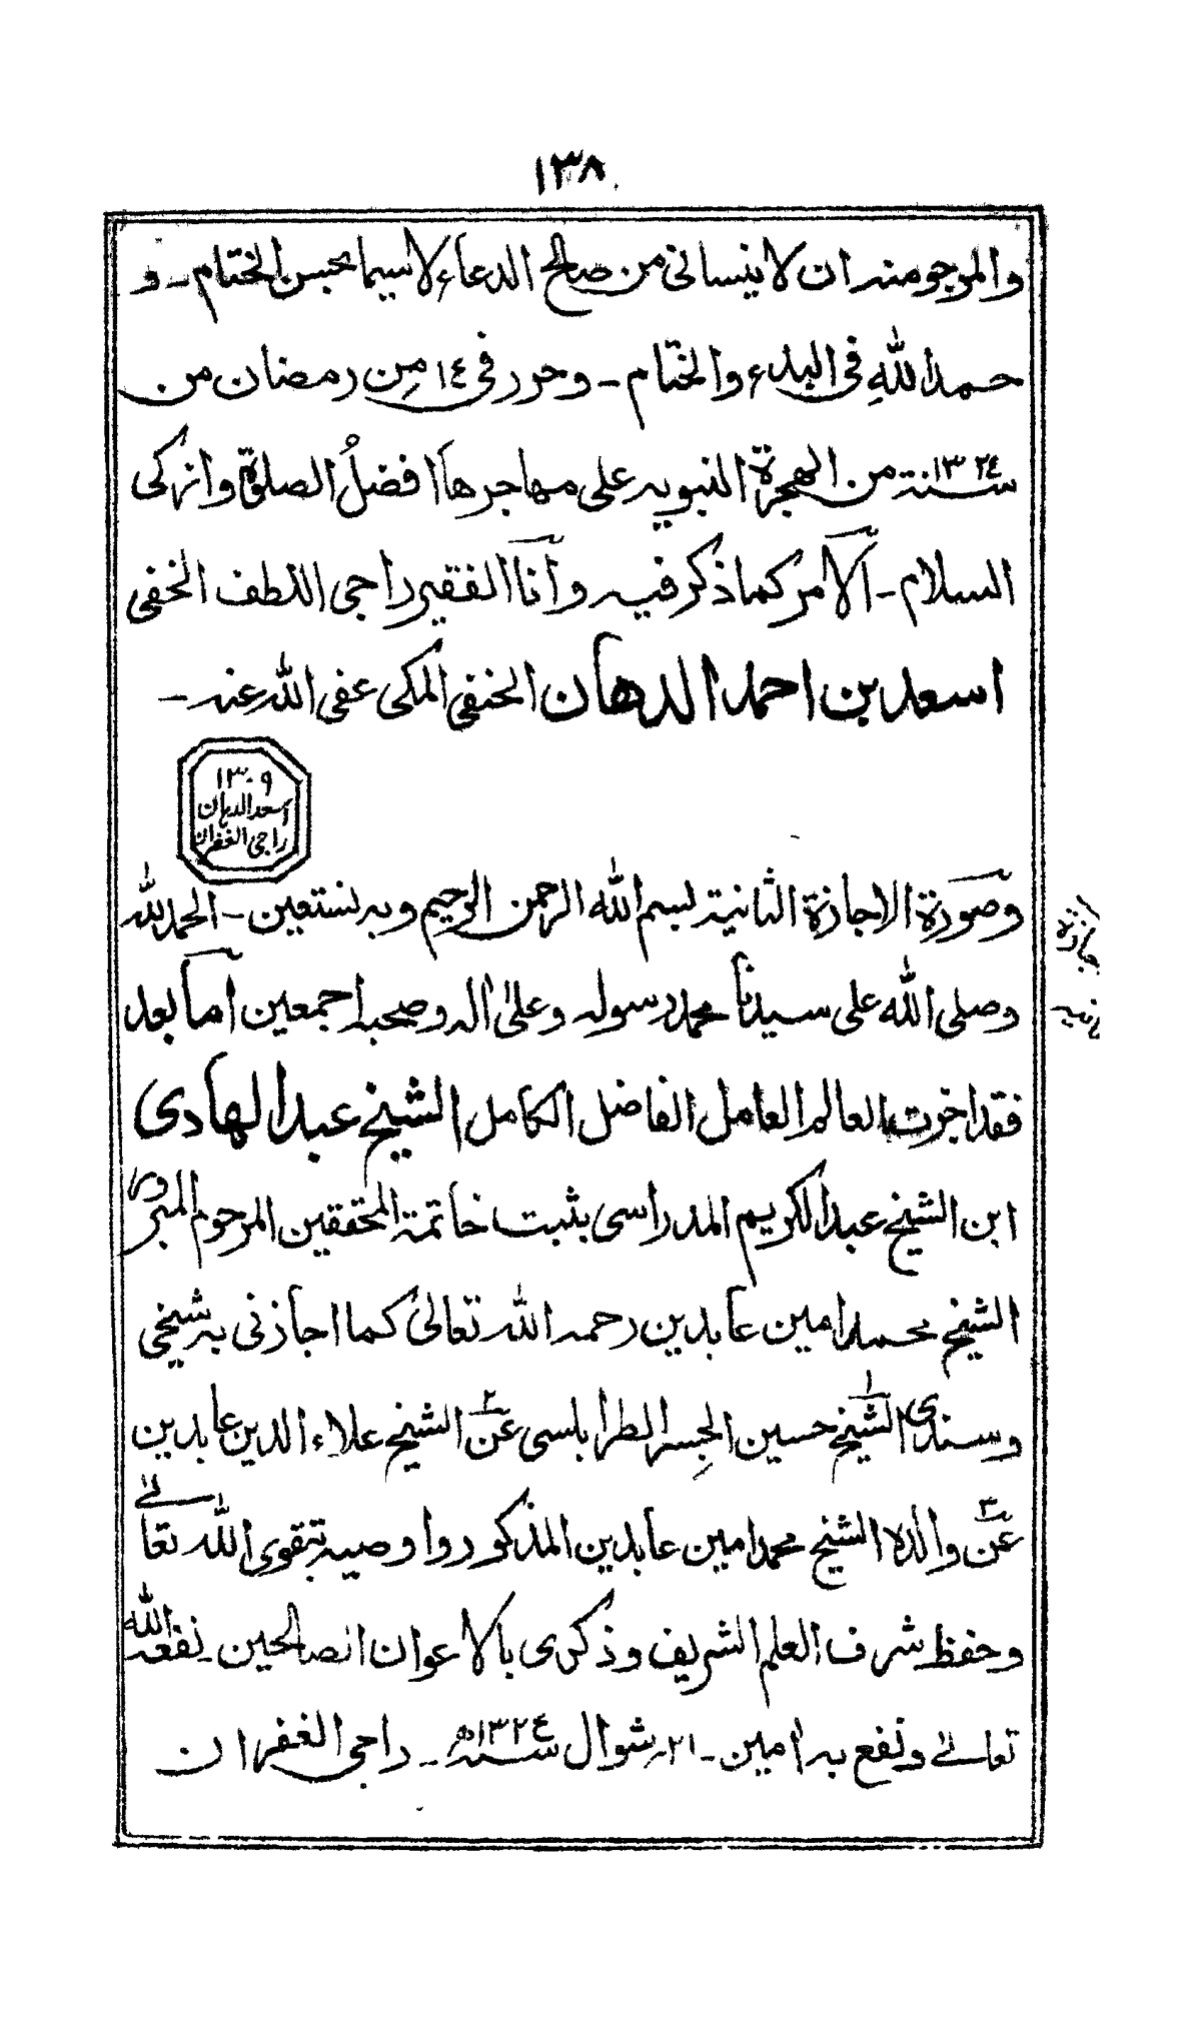 ١٣٨
والمرجو منه ان لا ينسانی من صالح الدعاء لاسيما بحسن الختام ــ و
حمد اللهِ فی البدء والختام ــ وحرر فی ١٤ من رمضان من
سنة ١٣٢٤ من الهجرة النبويه علی مهاجرها افضلُ الصلوة وازکی
السلام ــ الامر کما ذکر فيه وانا الفقير راجی اللطف الخفی
اسعد بن احمد الدهان الحنفی المکی عفی الله عنه ــ
١٣٠٩
اسعد الدهان
راجی الغفران
وصورة الاجازة الثانية بسم الله الرحمن الرحيم وبه نستعين ــ الحمد لله
وصلی الله علی سيدنا محمد رسوله وعلیٰ اله وصحبه اجمعين اما بعد
فقد اجزت العالم العامل الفاضل الکامل الشيخ عبد الهادی
ابن الشيخ عبد الکريم المدراسی بثبت خاتمة المحققين المرحوم المبرور
الشيخ محمد امين عابدين رحمه الله تعالیٰ کما اجازنی به شيخی
وسندی الشيخ ١ حسين الجِسر الطرابلسی عن ٢ الشيخ علاء الدين عابدين
عن ٣ والده الشيخ محمد امين عابدين المذکور واوصيه بتقوی الله تعالے
وحفظ شرف العلم الشريف وذکری بالاعوان الصالحين ـ نفعه الله
تعالے ونفع به امين ــ ٢١ شوال سنة ١٣٢٤ه ــ راجی الغفران